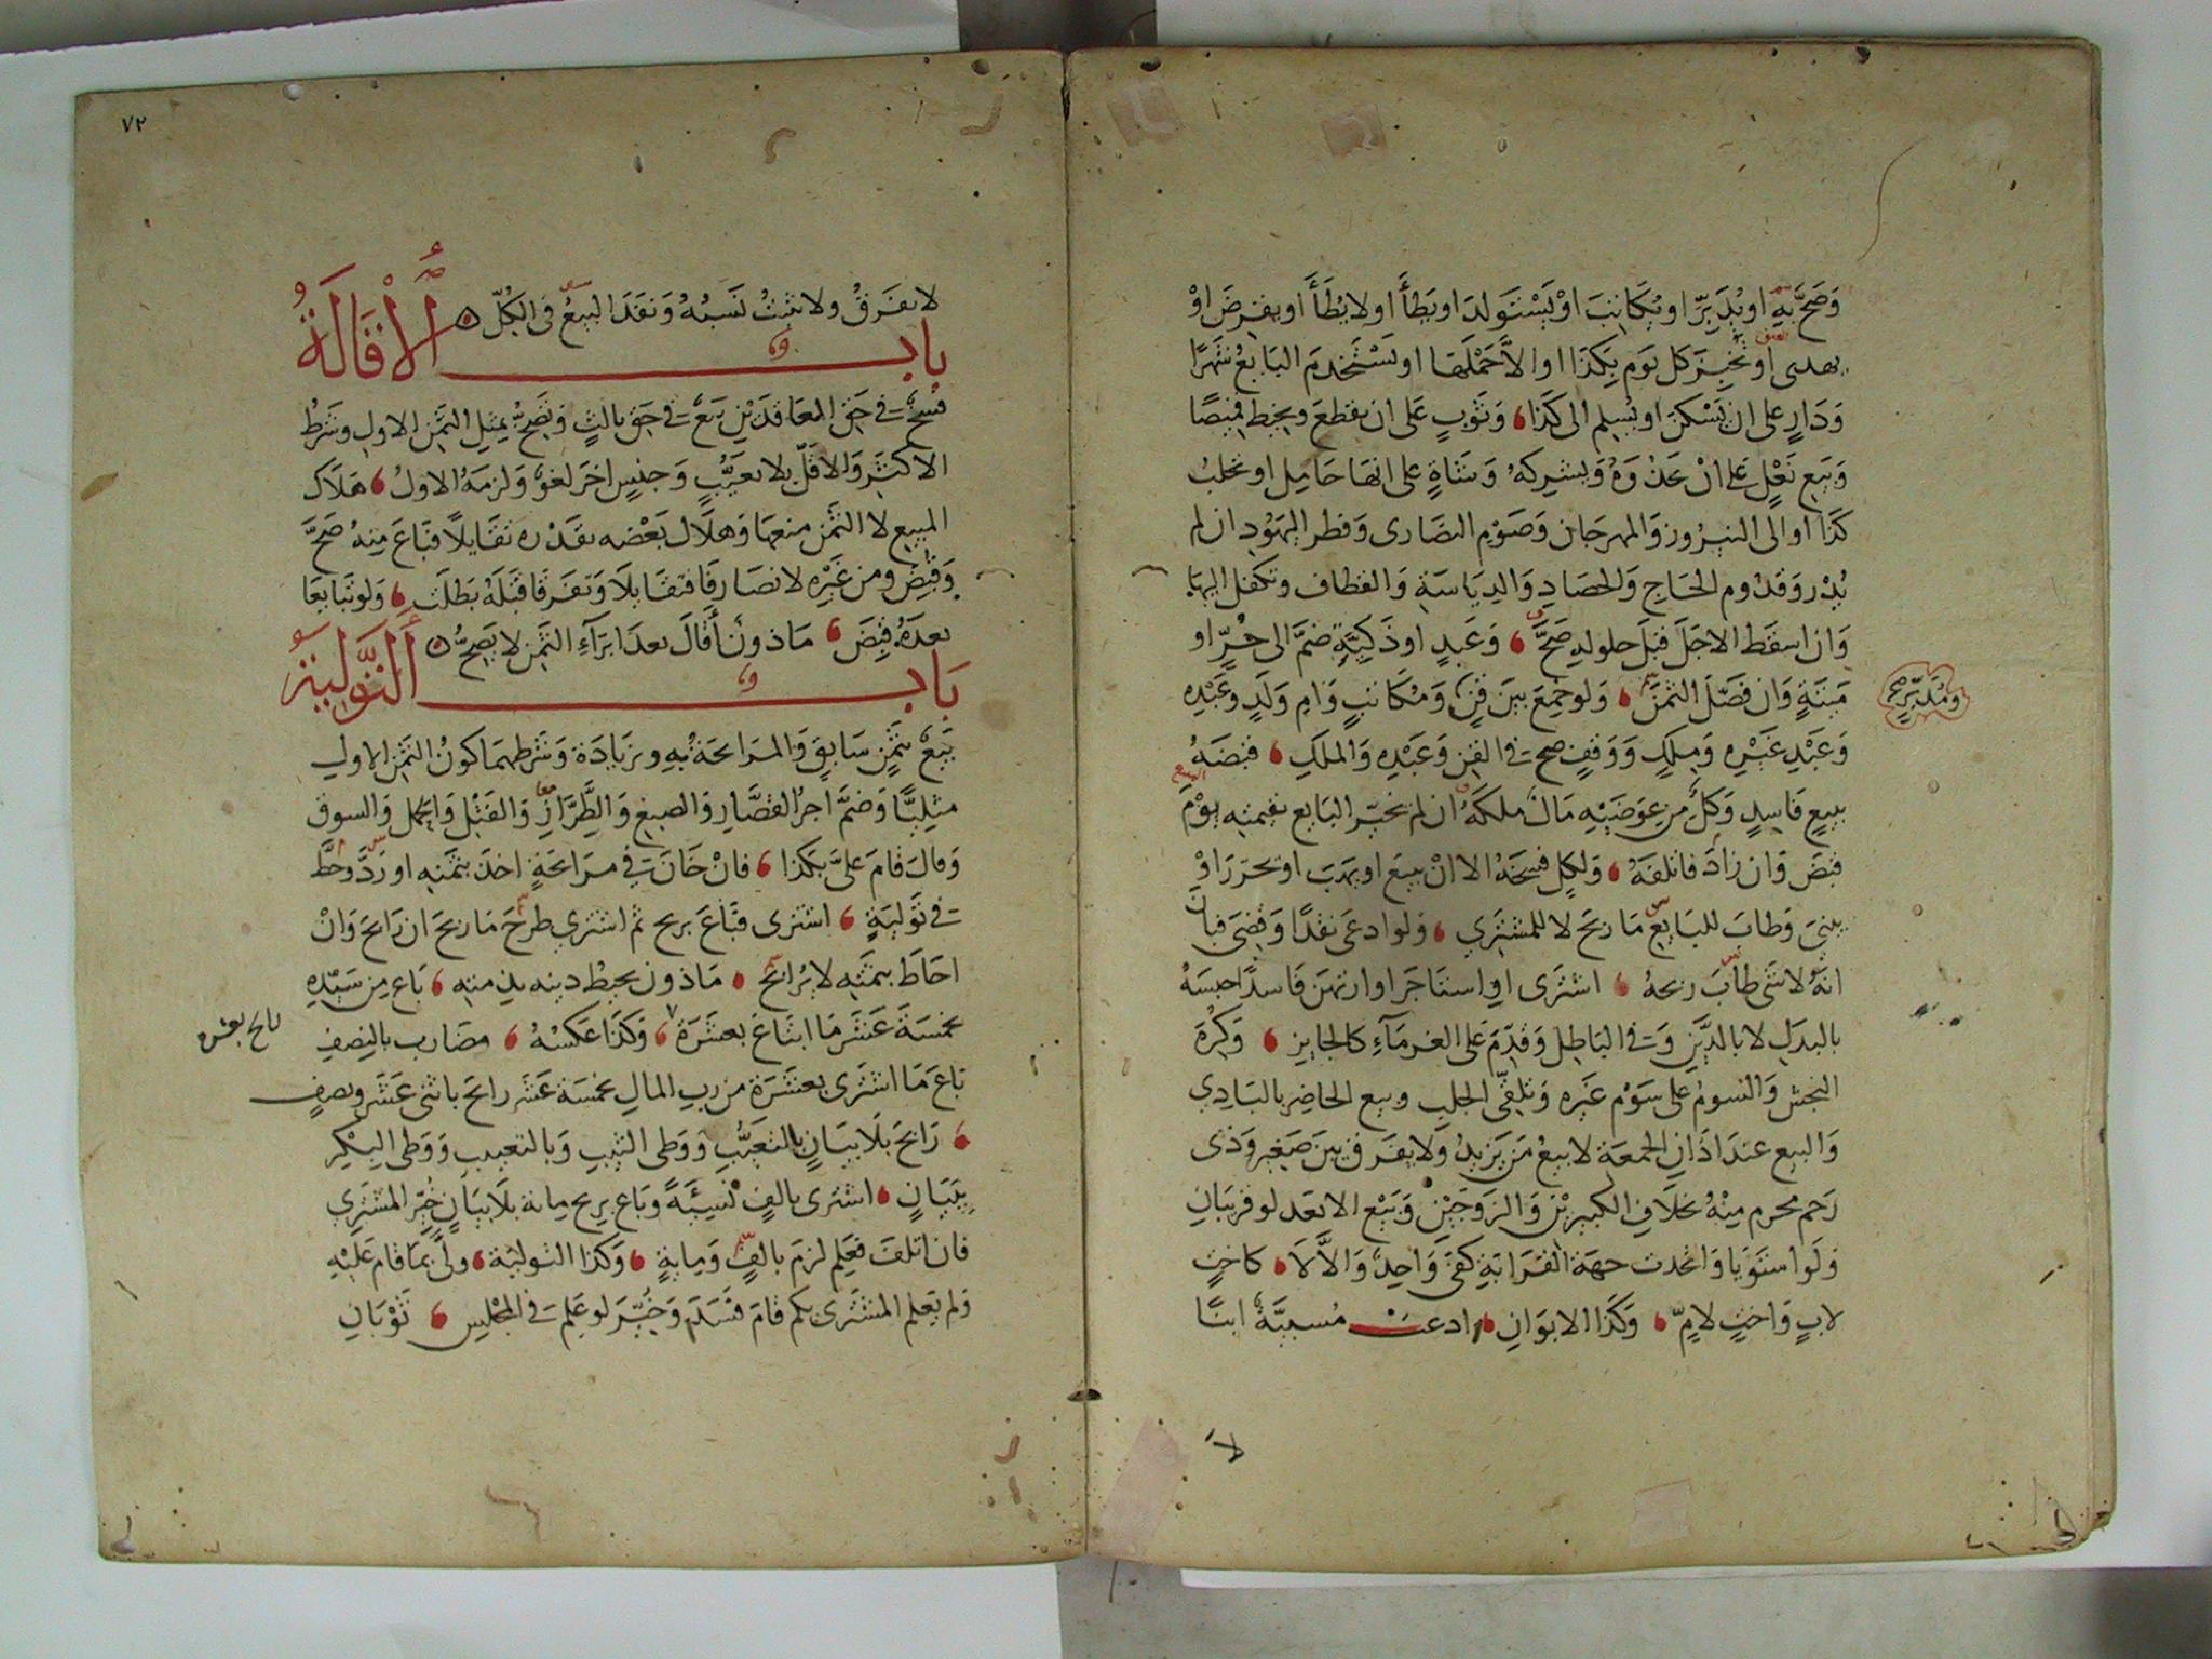 وَصَحَّ بِهِ اويُدَبِّرَ اويُكَاتِبَ اوْيَسْتَولدَ اويَطأَ اولايُطَأَ اويقرضَ اوْ
يهدى اوتخبزَ كل يَوم بِكَذا اوالاَّ حَمْلَهَا اويَسْتَخدمَ البَايعُ شهرًا
وَدَارٍ على ان يَسْكنَ اويُسلم الى كَذا وَثَوبٍ عَلى ان يقطعَ ويخيط قميصًا
وَبَيع نَعْلٍ عَلى انْ يحذُوَهُ وَيشركهُ وَشَاةٍ على انهَا حَامِل اوتحلبُ
كَذا اوالى النيرُوز وَالمهرجَان وَصَوْمِ النصَارى وَفطر اليهَوُد ان لم
يُدْرَ وَقدُوم الحَاج وَالحصَادِ وَالديَاسَة وَالقطاف وتكفل اليهَا
وَان اسقَط الاجَلَ قبلَ حلولهِ صَحَّ وَعَبدٍ اوذَكيَّةٍ ضمَّ الى حُرٍّ او
مَيتَةٍ وَان فصَّلَ الثمنَ وَلوجمعَ بينَ قنٍّ وَمُكَاتبٍ وَامِ وَلَدٍ وعَبْدِه
ومُدَبَّرٍ صح
وَعَبْدِ غَيْرِه وَمِلكٍ وَوَقفٍ صح فى القِن وَعَبْدِه وَالملكِ قبضَهُ
ببيعٍ فاسِدٍ وَكلٌ مِن عِوَضَيْهِ مَالٌ ملكَهُ ان لم يخيّر البَايع بقيمتِه يوْمَ
قبضَ وَان زادَ فاتلفَهُ وَلكلٍ فسخهُ الا انْ يبيعَ اويهَبَ اويحرّرَ اوْ
يبنىَ وَطابَ للبَايعِ مَا ربحَ لا للمشترِي وَلوادعَى نقدًا وَقضىَ فبان
انهُ لاشى طابَ ربحهُ اشترَى اواستاجَرَ اوارتهنَ فَاسدًا حبسَهُ
بالبدَلِ لا بالدَّينِ وَفى البَاطِل وَقدِّمَ عَلى الغرمَآءِ كالجايِز وَكُرهَ
النجش وَالسومُ على سَوْم غَيْرِه وَتلقّى الجلبِ وبيع الحاضِر بالبَادِي
وَالبيع عندَ اذَانِ الجمعَة لابيعُ مَن يَزيدُ وَلايفرق بينَ صَغير وَذى
رَحم محرم مِنْهُ بخلاَفِ الكبيرَيْن وَالزوجَيْنِ وَبَيْع الابعَد لوقريبَانِ
وَلَواستَوَيَا وَاتحدت جهَة القرَابَةِ كفىَ وَاحِدٌ وَالاَّ لاَ كاختٍ
لابٍ وَاختٍ لامٍّ وَكَذا الابوَانِ ادعت مُسبيَّةٌ ابنًا
لا
٧٢
لايفَرقُ ولاتثبتُ نَسَبُهُ وَنفَذَ البيعُ فى الكُلّ
باب الاِقَالَةُ
فسخٌ فى حَق المعَاقدَيْن بَيعٌ فى حَق ثالثٍ وَتصَحُّ بِمثلِ الثمَن الاولِ وشَرْطُ
الاكثرِ وَالاقلِّ بلا تعيّبٍ وَجنسٍ اخَر لغوٌ وَلزمَهُ الاولُ هَلاَكُ
المبيع لا الثمَن منعهَا وَهلاَك بَعْضه بقدْره تقَايلاَ فبَاعَ مِنهُ صَحَّ
وَقبضَ ومن غَيْرِه لا تصَارفَا فتقَايلاَ وَتفَرقَا قبْلَهُ بَطلَت وَلوتَبايعَا
بعدَهُ قبضَ مَاذون أقَالَ بعدَ ابرَآءِ الثمَن لايَصِحُّ
بَاب التَّولِيَةُ
بَيعٌ بثمَنٍ سَابقٍ وَالمرَابحَة بهِ وبزيَادَة وَشَرطهمَا كونُ الثمَن الاولِ
مثليًّا وَضمَّ اجرَ القصَّارِ وَالصبغ وَالطِّرَازِ وَالفَتْل وَالحمل وَالسوق
وَقالَ قامَ علىَّ بكَذا فانْ خَانَ فى مرَابحَةٍ اخذ بثمَنِه اورَدَّ وحطَّ
فى تَوليَةٍ اشترى فبَاعَ بربح ثم اشترى طرحَ مَا ربحَ ان رَابحَ وَانْ
احَاطَ بِثمَنِه لايُرَابح مَاذون يحيطُ دينه بثمنِه بَاع مِن سَيّدِه
بخمسَةَ عَشَرَ مَا ابتَاعَ بعشَرَة وَكَذا عَكسْهُ مضَارب بالنِصفِ
رابح بعشره
بَاعَ مَا اشترَى بعشَرَة من ربِ المالِ بخمسَة عَشَر رابحَ باثنى عَشَر ونصفٍ
رَابحَ بلاَ بيَانٍ بالتعَيُّبِ وَوَطى الثيبِ وَبالتعييب وَوَطى البِكْرِ
بِبَيَانٍ اشترى بالفٍ نَسيئَةً وبَاع بربح مِائة بلاَ بيَانٍ خُيّرَ المشترِي
فان اتلفَ فعَلِم لزمَ بالفٍ وَمِايةٍ وَكَذا التوليَة ولىَّ بمَا قامَ عَليْهِ
وَلم يَعلم المشترَى بكم قامَ فسَدَ وَخُيّرَ لوعَلِمَ فى المجْلِسِ ثَوْبَانِ